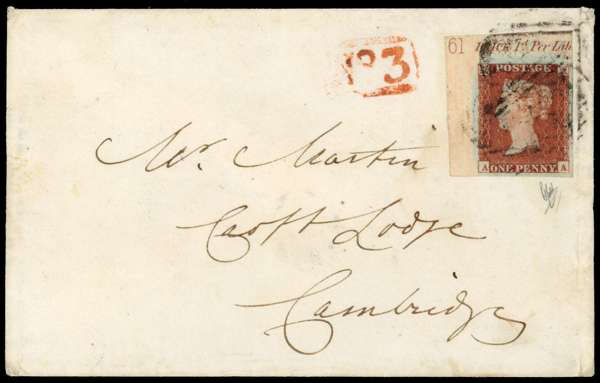 61 PRICE 1d Per Lab
P3
POSTAGE
A ONE PENNY A
Mr. Martin
Croft Lodge
Cambridge